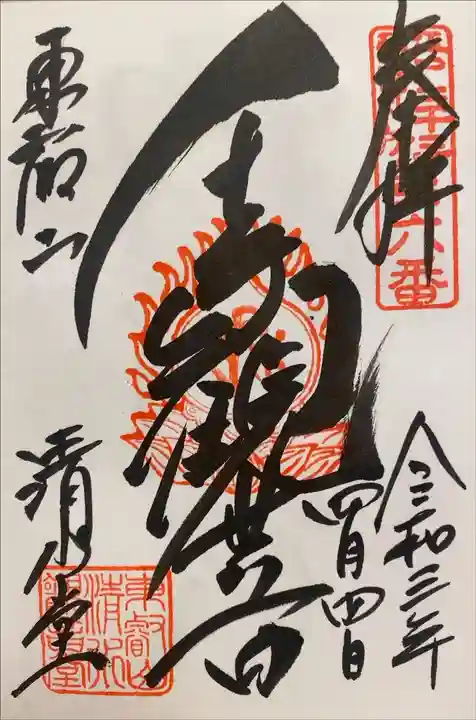 奉拝
令和三年
四月四日
千手観世音
東叡山
清水堂
六番
東叡山
清水
觀音堂